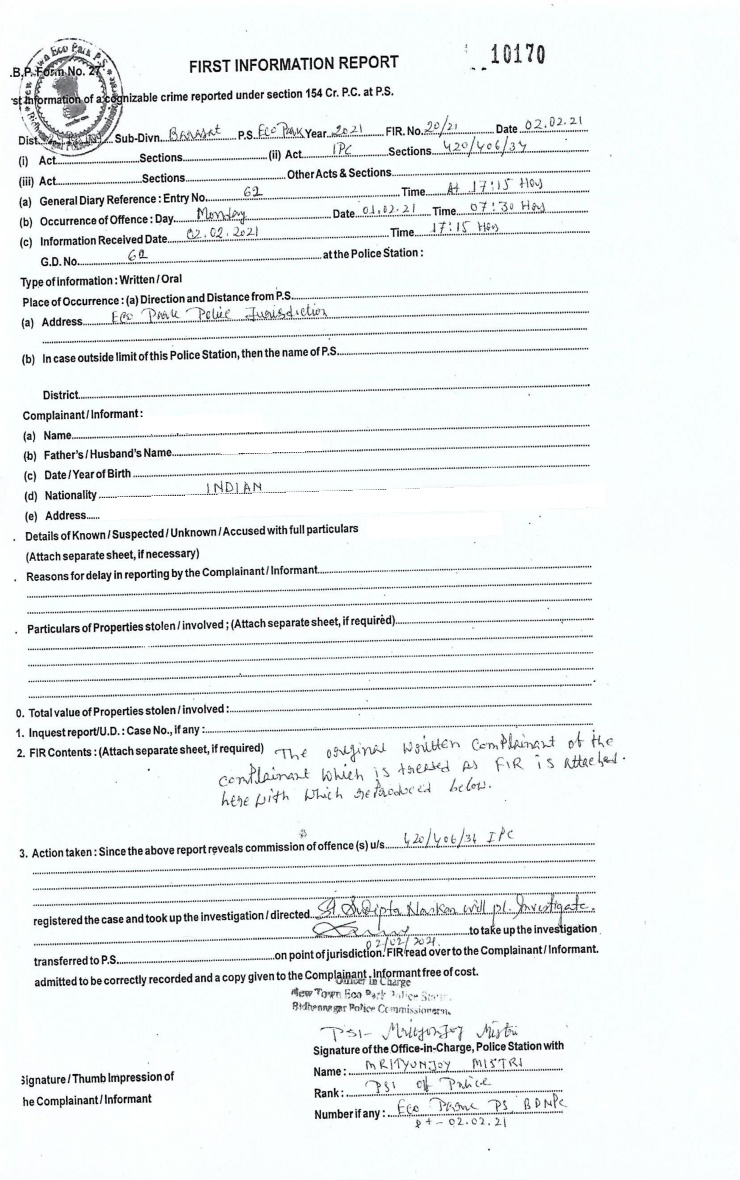 10170
.B.P. Form No. 27
FIRST INFORMATION REPORT
st Information of a cognizable crime reported under section 154 Cr. P.C. at P.S.
Dist. Sub-Divn. Barasat P.S. Eco Park Year 2021 FIR. No. 20/21 Date 02.02.21
(i) Act Sections (ii) Act IPC Sections 420/406/34
(iii) Act Sections Other Acts & Sections
(a) General Diary Reference : Entry No. 62 Time At 17:15 Hrs
(b) Occurrence of Offence : Day Monday Date 01.02.21 Time 07:30 Hrs
(c) Information Received Date 02.02.2021 Time 17:15 Hrs
G.D. No. 62 at the Police Station :
Type of information : Written / Oral
Place of Occurrence : (a) Direction and Distance from P.S.
(a) Address Eco Park Police Jurisdiction
(b) In case outside limit of this Police Station, then the name of P.S.
District
Complainant / Informant :
(a) Name
(b) Father's / Husband's Name
(c) Date / Year of Birth
(d) Nationality INDIAN
(e) Address
Details of Known / Suspected / Unknown / Accused with full particulars
(Attach separate sheet, if necessary)
Reasons for delay in reporting by the Complainant / Informant
Particulars of Properties stolen / involved ; (Attach separate sheet, if required)
0. Total value of Properties stolen / involved :
1. Inquest report / U.D. : Case No., if any :
2. FIR Contents : (Attach separate sheet, if required) The original written complainant of the
complainant which is treated as FIR is attached
here with which reproduced below.
3. Action taken : Since the above report reveals commission of offence (s) u/s 420/406/34 IPC
registered the case and took up the investigation / directed SI Sudipta Naskar will pl. Investigate.
to take up the investigation
02/02/2021
transferred to P.S. on point of jurisdiction. FIR read over to the Complainant / Informant.
admitted to be correctly recorded and a copy given to the Complainant . Informant free of cost.
Officer in Charge
New Town Eco Park Police
Bidhannagar Police
PSI- Mrityunjoy Mistri
Signature of the Office-in-Charge, Police Station with
Name : MRITYUNJOY MISTRI
Signature / Thumb Impression of
Rank : PSI of Police
he Complainant / Informant
Number if any : Eco Park PS, BDNPC
Dt - 02.02.21